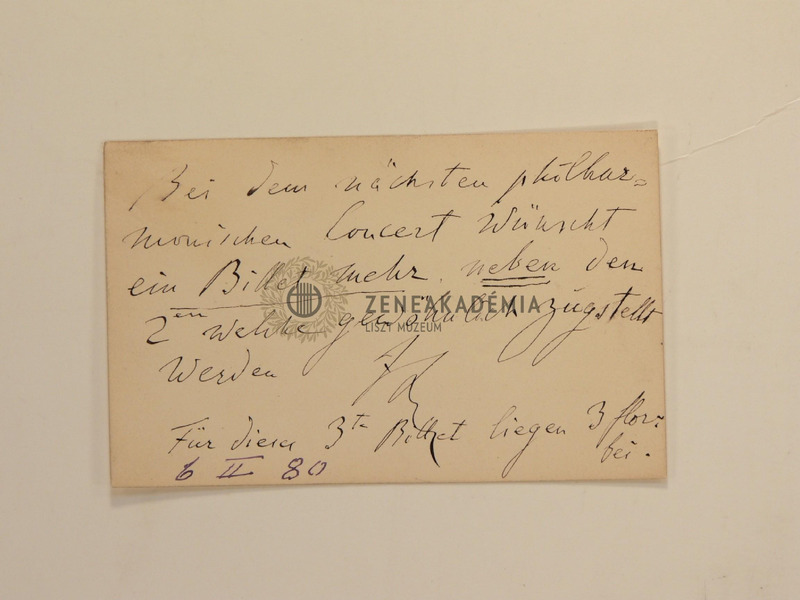 Bei dem nächsten philhar=
monischen Concert wünscht
ein Billet mehr, neben den
2en welche gewöhnlich zugstellt
werden
FL
Für dieses 3te Billet liegen 3 flor:
bei.
6 II 80
ZENEAKADÉMIA
LISZT MÚZEUM